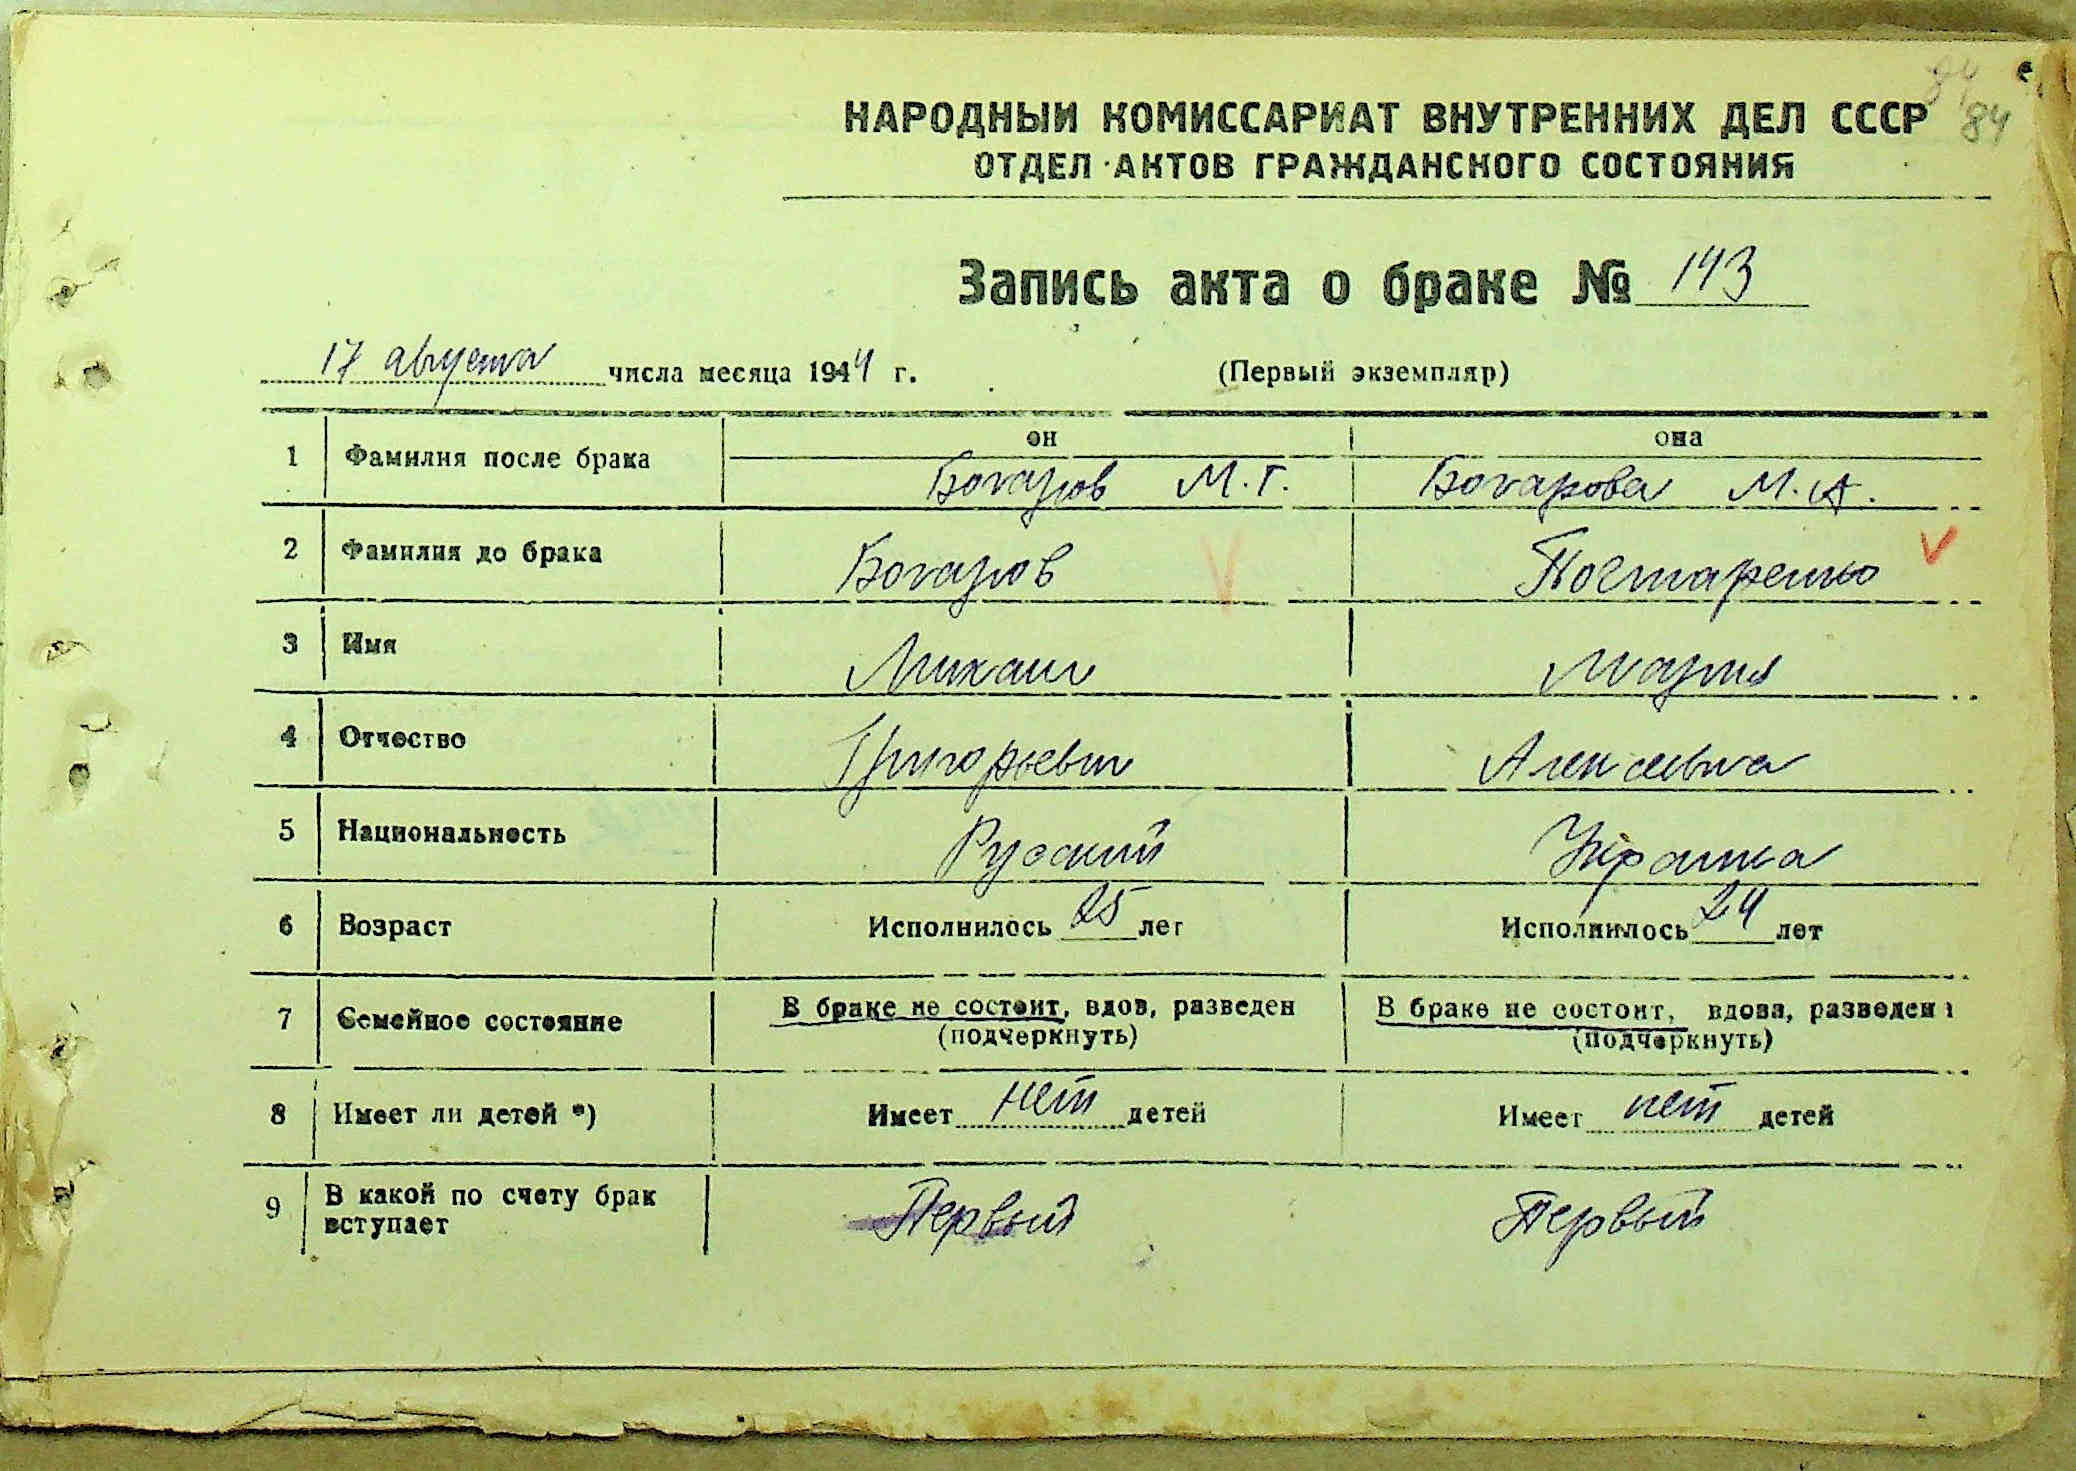 84
84
НАРОДНЫЙ КОМИССАРИАТ ВНУТРЕННИХ ДЕЛ СССР
ОТДЕЛ АКТОВ ГРАЖДАНСКОГО СОСТОЯНИЯ
Запись акта о браке № 143
17 августа числа месяца 1944 г. (Первый экземпляр)
он она
1 Фамилия после брака Бочаров М.Г. Бочарова М.А.
2 Фамилия до брака Бочаров
3 Имя Михаил Мария
4 Отчество Григорьевич Алексеевна
5 Национальность Русский Украинка
6 Возраст Исполнилось 25 лет Исполнилось 24 лет
7 Семейное состояние В браке не состоит, вдов, разведен В браке не состоит, вдова, разведена
(подчеркнуть) (подчеркнуть)
8 Имеет ли детей *) Имеет нет детей Имеет нет детей
9 В какой по счету брак вступает Первый Первый